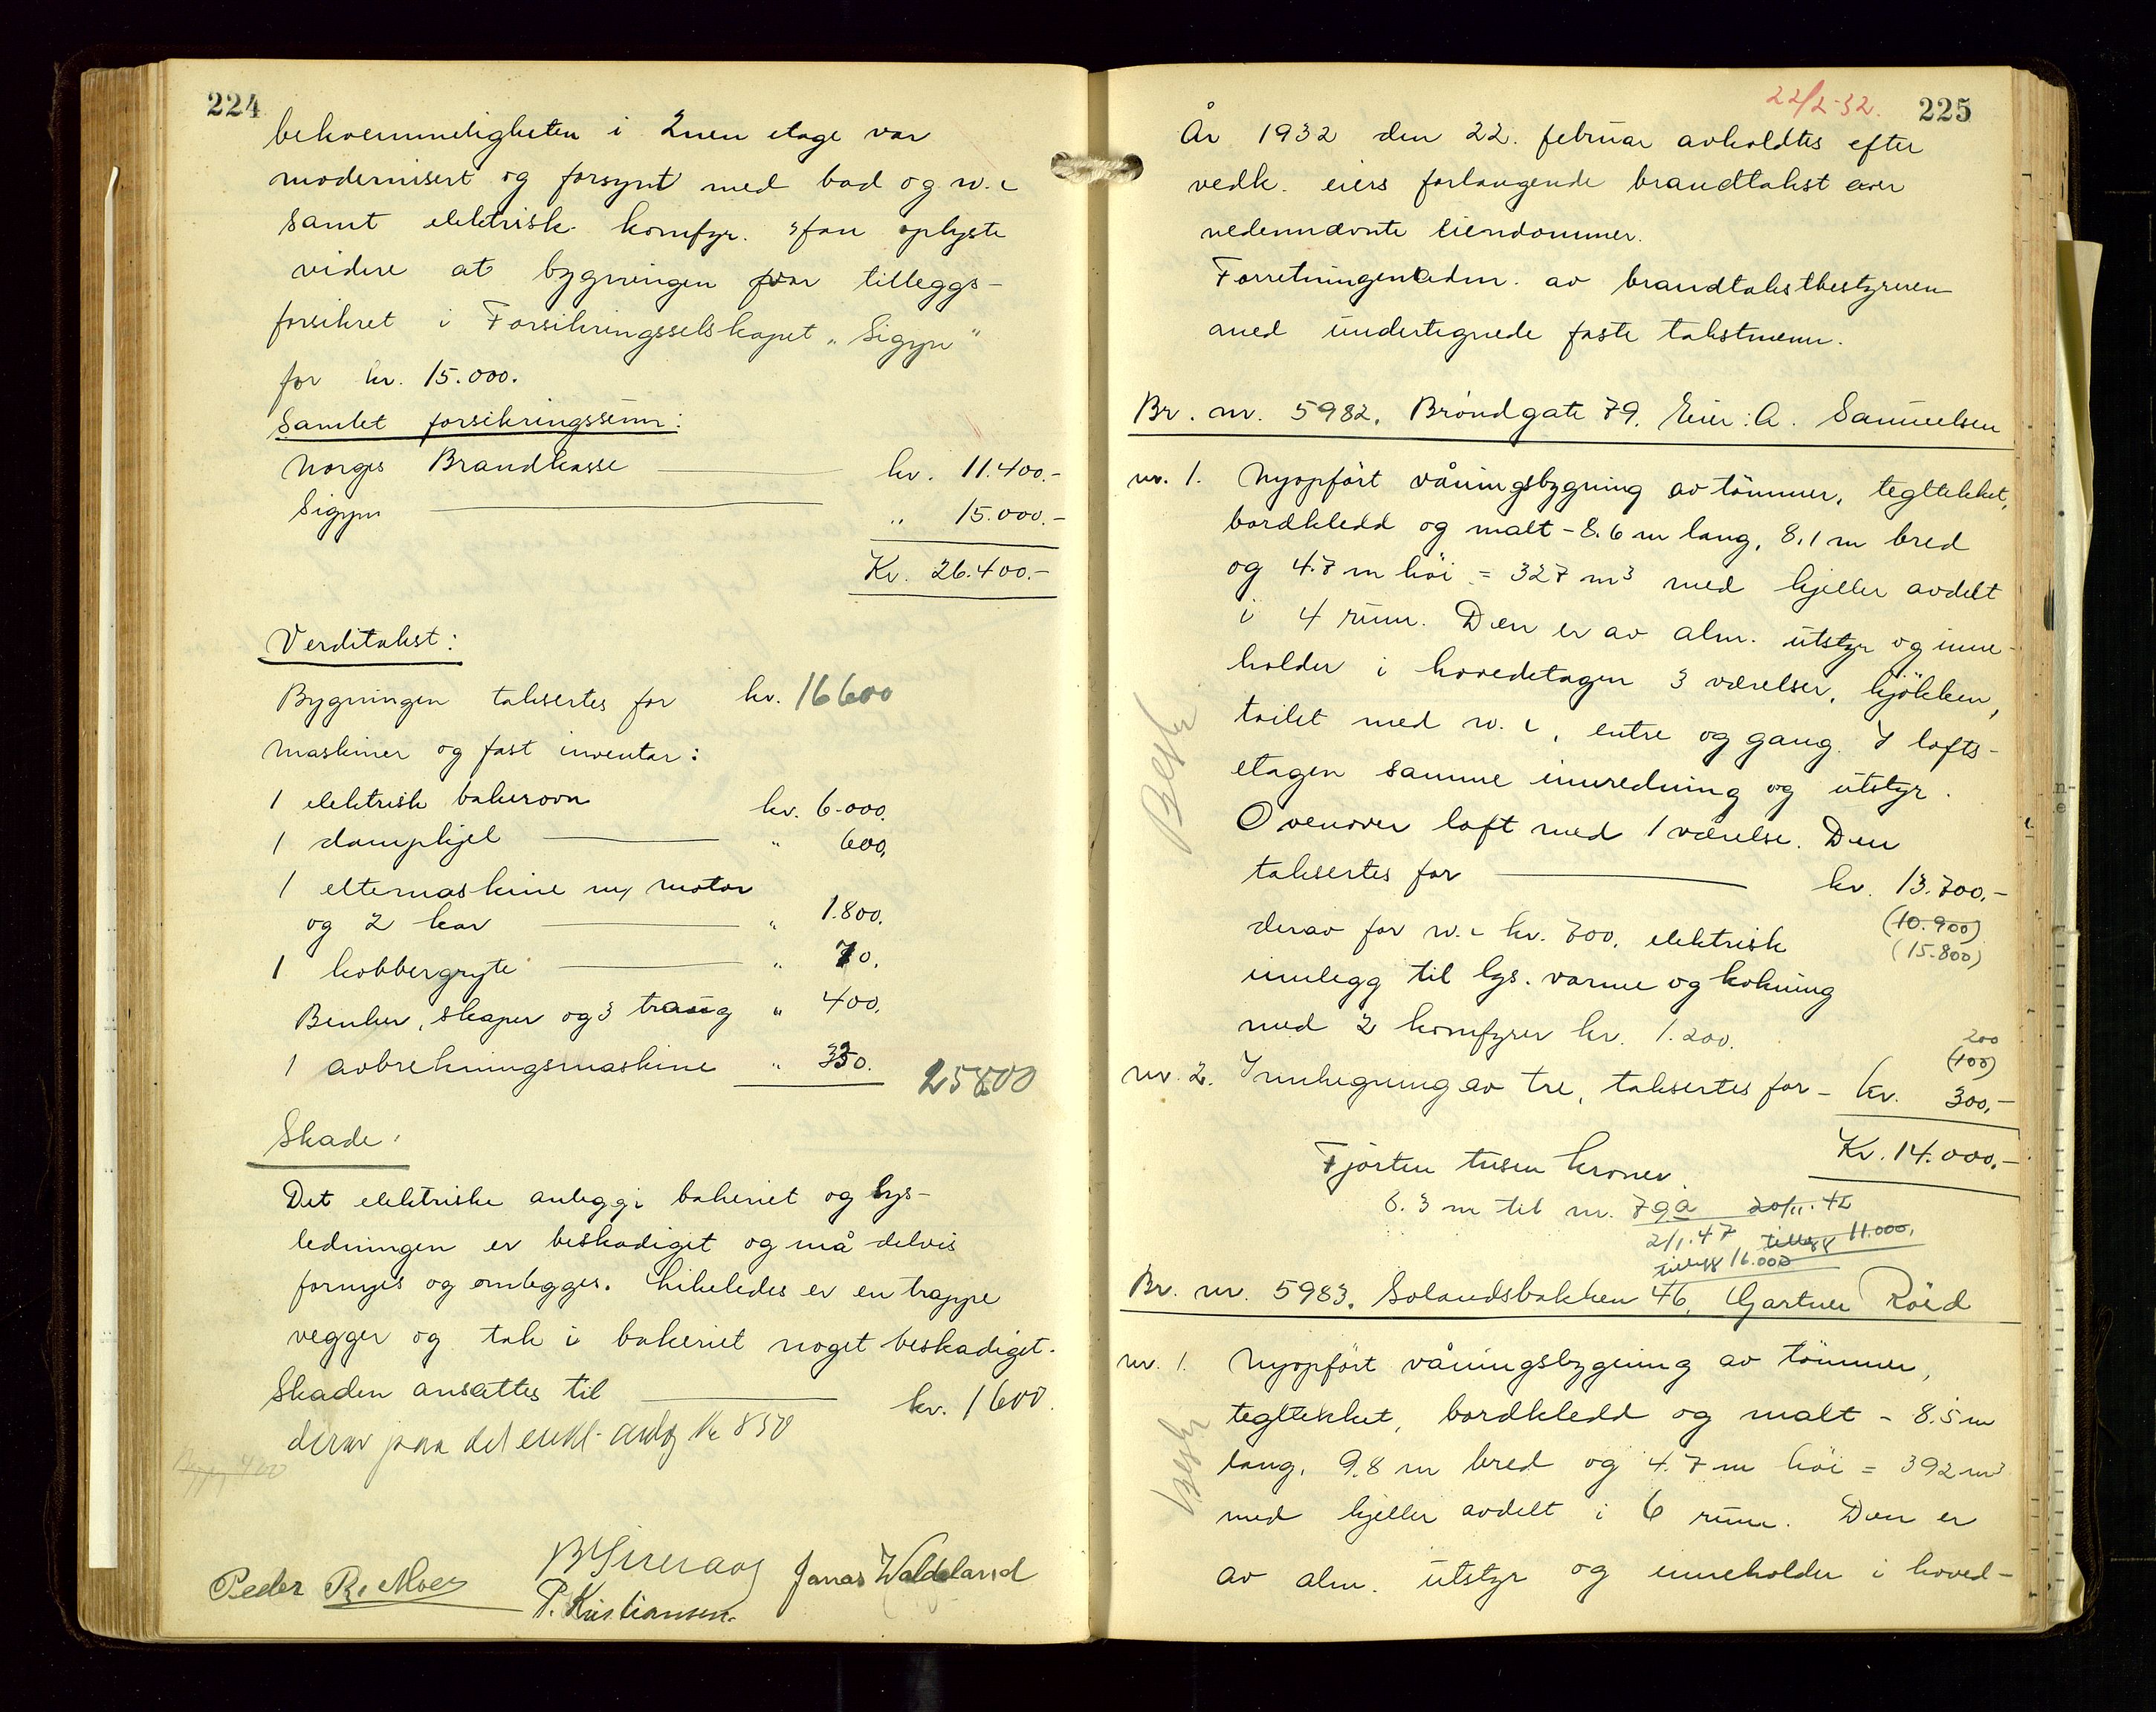 224
bekvemmeligheten i 2nen etage var
modernisert og forsynt med bad og w.c
samt elektrisk komfyr. Han oplyste
videre at bygningen var tilleggs-
forsikret i Forsikringsselskapet "Sigyn"
for kr. 15.000.
Samlet forsikringssum:
Norges Brandkasse kr. 11.400.-
Sigyn " 15.000.-
Kr. 26.400.-
Verditakst:
Bygningen taksertes for kr. 16600
Maskiner og fast inventar:
1 elektrisk bakerovn kr. 6.000.
1 dampkjel " 600.
1 eltemaskine m/ motor
og 2 kar " 1.800.
1 kobbergryte " 70.
Benker, skaper og 3 traug " 400.
1 avbrekningsmaskine " 350. 25800
Skade:
Det elektriske anlegg i bakeriet og lys-
ledningen er beskadiget og må delvis
fornyes og omlegges. Likeledes er en trappe
vegger og tak i bakeriet noget beskadiget.
Skaden ansættes til kr. 1600.
derav paa det elekt. anlæg kr 850
400
Peder R. Moe Jonas Waldeland
P. Kristiansen.
22/2-32. 225
År 1932 den 22. februar avholdtes efter
vedk. eiers forlangende brandtakst over
nedennævnte eiendommer.
Forretningen adm. av brandtakstbestyreren
med undertegnede faste takstmenn.
Br. nr. 5982. Bröndgate 79. Eier: A. Samuelsen
nr. 1. Nyopfört våningsbygning av tömmer, tegltekket,
bordkledd og malt - 8.6 m lang, 8,1 m bred
og 4.7 m höi = 327 m³ med kjeller avdelt
i 4 rum. Den er av alm. utstyr og inne-
holder i hovedetagen 3 værelser, kjökken,
toilet med w.c, entre og gang. I lofts-
etagen samme innredning og utstyr.
Ovenover loft med 1 værelse. Den
taksertes for kr. 13.700.-
(10.900)
derav for w.c kr. 700. elektrisk
(15.800)
innlegg til lys. varme og kokning
med 2 komfyrer kr. 1.200.
200
(100)
nr. 2. Innhegning av tre, taksertes for - kr. 300.-
Kr. 14.000.-
Fjorten tusen kroner.
6.3 m til nr. 79a 20/11.42
2/1.47 tillegg 11.000,
tillegg 16.000
Br. nr. 5983. Solandsbakken 46, Gartner Röed
nr. 1. Nyopfört våningsbygning av tömmer,
tegltekket, bordkledd og malt - 8.5 m
lang, 9.8 m bred og 4.7 m höi = 392 m³
med kjeller avdelt i 6 rum. Den er
av alm. utstyr og inneholder i hoved-